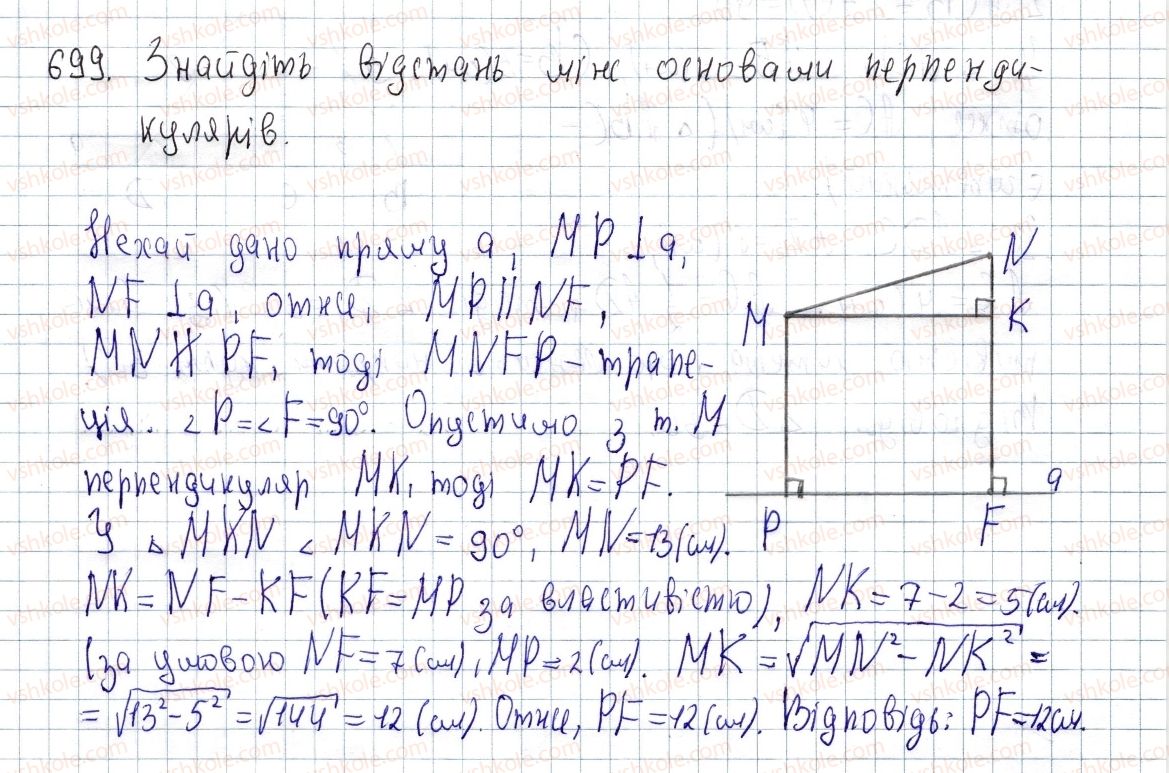 699. Знайдіть відстань між основами перпенди-
кулярів.
Нехай дано пряму a, MP⊥a,
NF⊥a, отже, MP||NF,
MN∦PF, тоді MNFP - трапе-
ція. ∠P=∠F=90°. Опустимо з т. M
перпендикуляр MK, тоді MK=PF.
У △MKN ∠MKN=90°, MN=13(см).
NK=NF-KF(KF=MP за властивістю), NK=7-2=5(см).
(за умовою NF=7(см), MP=2(см). MK=√MN²-NK²=
=√13²-5²=√144=12(см). Отже, PF=12(см). Відповідь: PF=12см.
N
M
K
a
P
F
vshkole.com